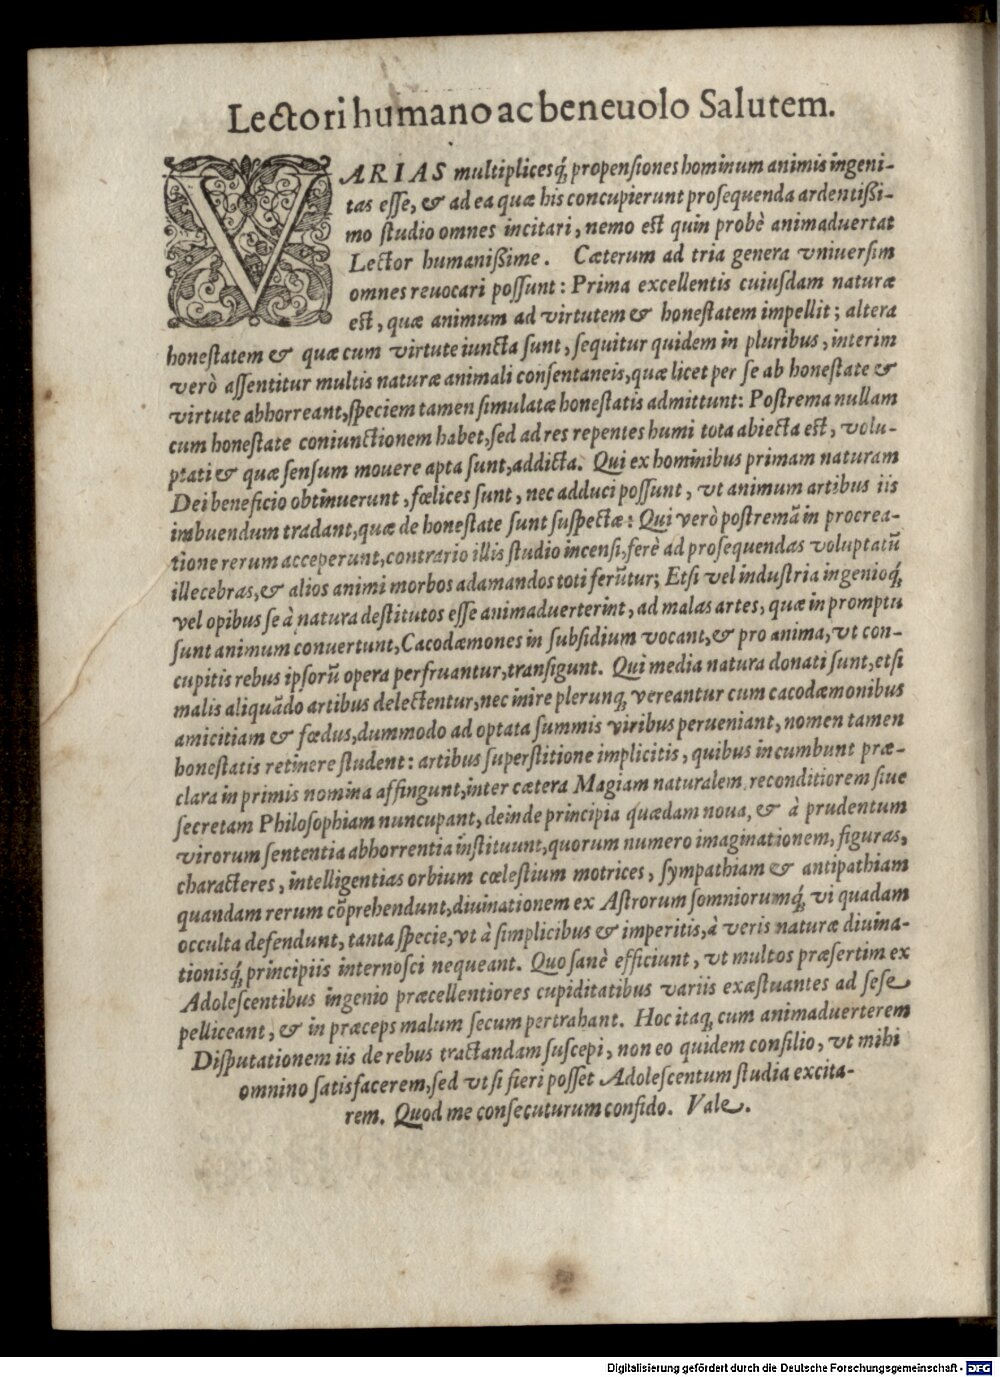 Lectori humano ac beneuolo Salutem.
VARIAS multiplicesq́; propensiones hominum animis ingeni-
tas esse, & ad ea quæ his concupierunt prosequenda ardentißi-
mo studio omnes incitari, nemo est quin probè animaduertat
Lector humanißime. Cæterum ad tria genera vniuersim
omnes reuocari possunt: Prima excellentis cuiusdam naturæ
est, quæ animum ad virtutem & honestatem impellit; altera
honestatem & quæ cum virtute iuncta sunt, sequitur quidem in pluribus, interim
verò assentitur multis naturæ animali consentaneis, quæ licet per se ab honestate &
virtute abhorreant, speciem tamen simulatæ honestatis admittunt: Postrema nullam
cum honestate coniunctionem habet, sed ad res repentes humi tota abiecta est, volu-
ptati & quæ sensum mouere apta sunt, addicta. Qui ex hominibus primam naturam
Dei beneficio obtinuerunt, fœlices sunt, nec adduci possunt, vt animum artibus iis
imbuendum tradant, quæ de honestate sunt suspectæ: Qui verò postremã in procrea-
tione rerum acceperunt, contrario illis studio incensi, ferè ad prosequendas voluptatũ
illecebras, & alios animi morbos adamandos toti ferũtur; Etsi vel industria ingenioq́;
vel opibus se à natura destitutos esse animaduerterint, ad malas artes, quæ in promptu
sunt animum conuertunt, Cacodæmones in subsidium vocant, & pro anima, vt con-
cupitis rebus ipsorũ opera perfruantur, transigunt. Qui media natura donati sunt, etsi
malis aliquãdo artibus delectentur, nec inire plerunq; vereantur cum cacodæmonibus
amicitiam & fœdus, dummodo ad optata summis viribus perueniant, nomen tamen
honestatis retinere student: artibus superstitione implicitis, quibus incumbunt præ-
clara in primis nomina affingunt, inter cætera Magiam naturalem reconditiorem siue
secretam Philosophiam nuncupant, deinde principia quædam noua, & à prudentum
virorum sententia abhorrentia instituunt, quorum numero imaginationem, figuras,
characteres, intelligentias orbium cœlestium motrices, sympathiam & antipathiam
quandam rerum cõprehendunt, diuinationem ex Astrorum somniorumq́; vi quadam
occulta defendunt, tanta specie, vt à simplicibus & imperitis, à veris naturæ diuina-
tionisq́; principiis internosci nequeant. Quo sanè efficiunt, vt multos præsertim ex
Adolescentibus ingenio præcellentiores cupiditatibus variis exæstuantes ad sese
pelliceant, & in præceps malum secum pertrahant. Hoc itaq; cum animaduerterem
Disputationem iis de rebus tractandam suscepi, non eo quidem consilio, vt mihi
omnino satisfacerem, sed vt si fieri posset Adolescentum studia excita-
rem. Quod me consecuturum confido. Vale.
Digitalisierung gefördert durch die Deutsche Forschungsgemeinschaft - DFG